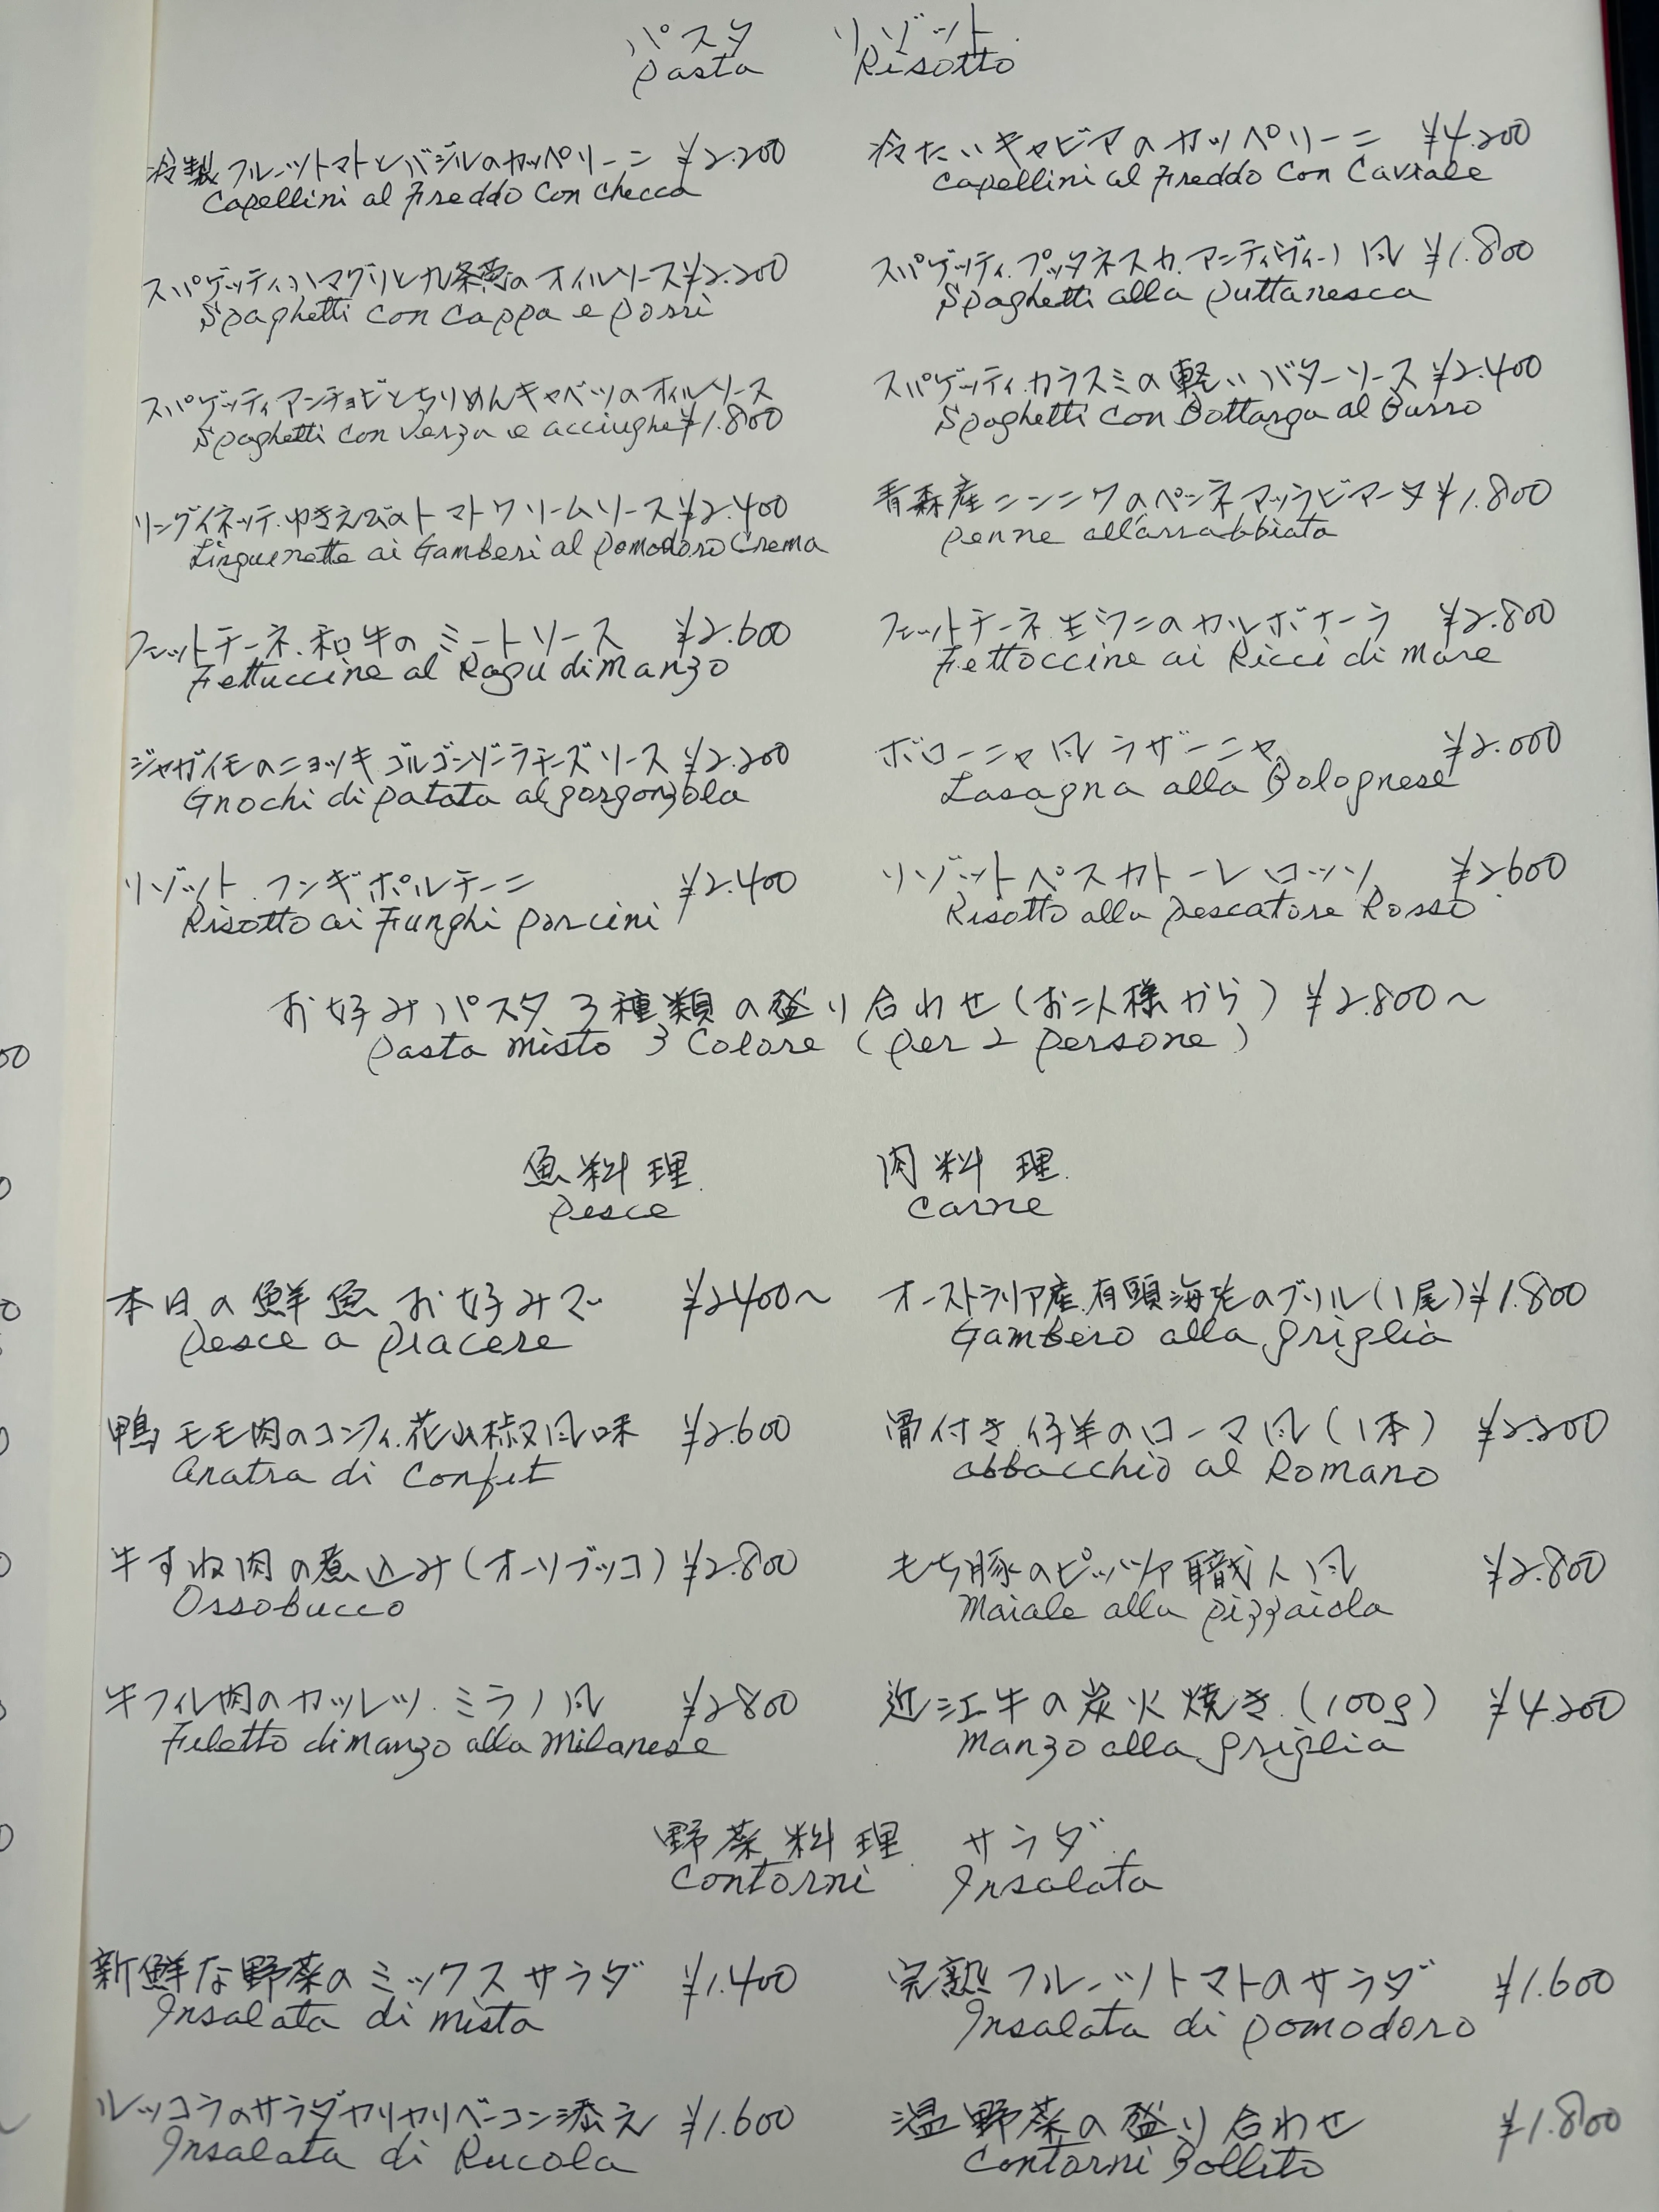 パスタ リゾット
Pasta Risotto
冷製フルーツトマトとバジルのカッペリーニ ¥2.200
Capellini al Freddo Con Checca
冷たいキャビアのカッペリーニ ¥4.200
Capellini al Freddo Con Caviale
スパゲッティ.ハマグリと九条葱のオイルソース ¥2.200
Spaghetti con Cappa e Porri
スパゲッティ.プッタネスカ.アンティヴィーノ風 ¥1.800
Spaghetti alla Puttanesca
スパゲッティアンチョビとちりめんキャベツのオイルソース
Spaghetti con Verza e acciughe ¥1.800
スパゲッティ.カラスミの軽いバターソース ¥2.400
Spaghetti con Bottarga al Burro
リングイネッテ.ゆきえびのトマトクリームソース ¥2.400
Linguenette ai Gamberi al Pomodoro Crema
青森産ニンニクのペンネアッラビアータ ¥1.800
Penne all'arrabbiata
フェットチーネ.和牛のミートソース ¥2.600
Fettuccine al Ragu di Manzo
フェットチーネ.生ウニのカルボナーラ ¥2.800
Fettoccine ai Ricci di Mare
ジャガイモのニョッキ ゴルゴンゾーラチーズソース ¥2.200
Gnochi di Patata al gorgonzola
ボローニャ風ラザーニャ ¥2.000
Lasagna alla Bolognese
リゾット.フンギポルチーニ ¥2.400
Risotto ai Funghi Porcini
リゾットペスカトーレロッソ ¥2600
Risotto alla Pescatore Rosso
お好みパスタ3種類の盛り合わせ(お二人様から) ¥2.800~
Pasta Misto 3 Colore (Per 2 Persone)
魚料理 肉料理
Pesce Carne
本日の鮮魚お好みで ¥2400~
Pesce a Piacere
オーストラリア産.有頭海老のグリル(1尾) ¥1.800
Gambero alla griglia
鴨モモ肉のコンフィ.花山椒風味 ¥2.600
Anatra di Confit
骨付き仔羊のローマ風(1本) ¥2.200
abbacchio al Romano
牛すね肉の煮込み(オーソブッコ) ¥2.800
Ossobucco
もち豚のピッツァ職人風 ¥2.800
Maiale alla Pizzaiola
牛フィレ肉のカツレツ.ミラノ風 ¥2800
Filetto di Manzo alla Milanese
近江牛の炭火焼き(100g) ¥4.200
Manzo alla griglia
野菜料理 サラダ
Contorni Insalata
新鮮な野菜のミックスサラダ ¥1.400
Insalata di Mista
完熟フルーツトマトのサラダ ¥1.600
Insalata di Pomodoro
ルッコラのサラダカリカリベーコン添え ¥1.600
Insalata di Rucola
温野菜の盛り合わせ ¥1.800
Contorni Bollito